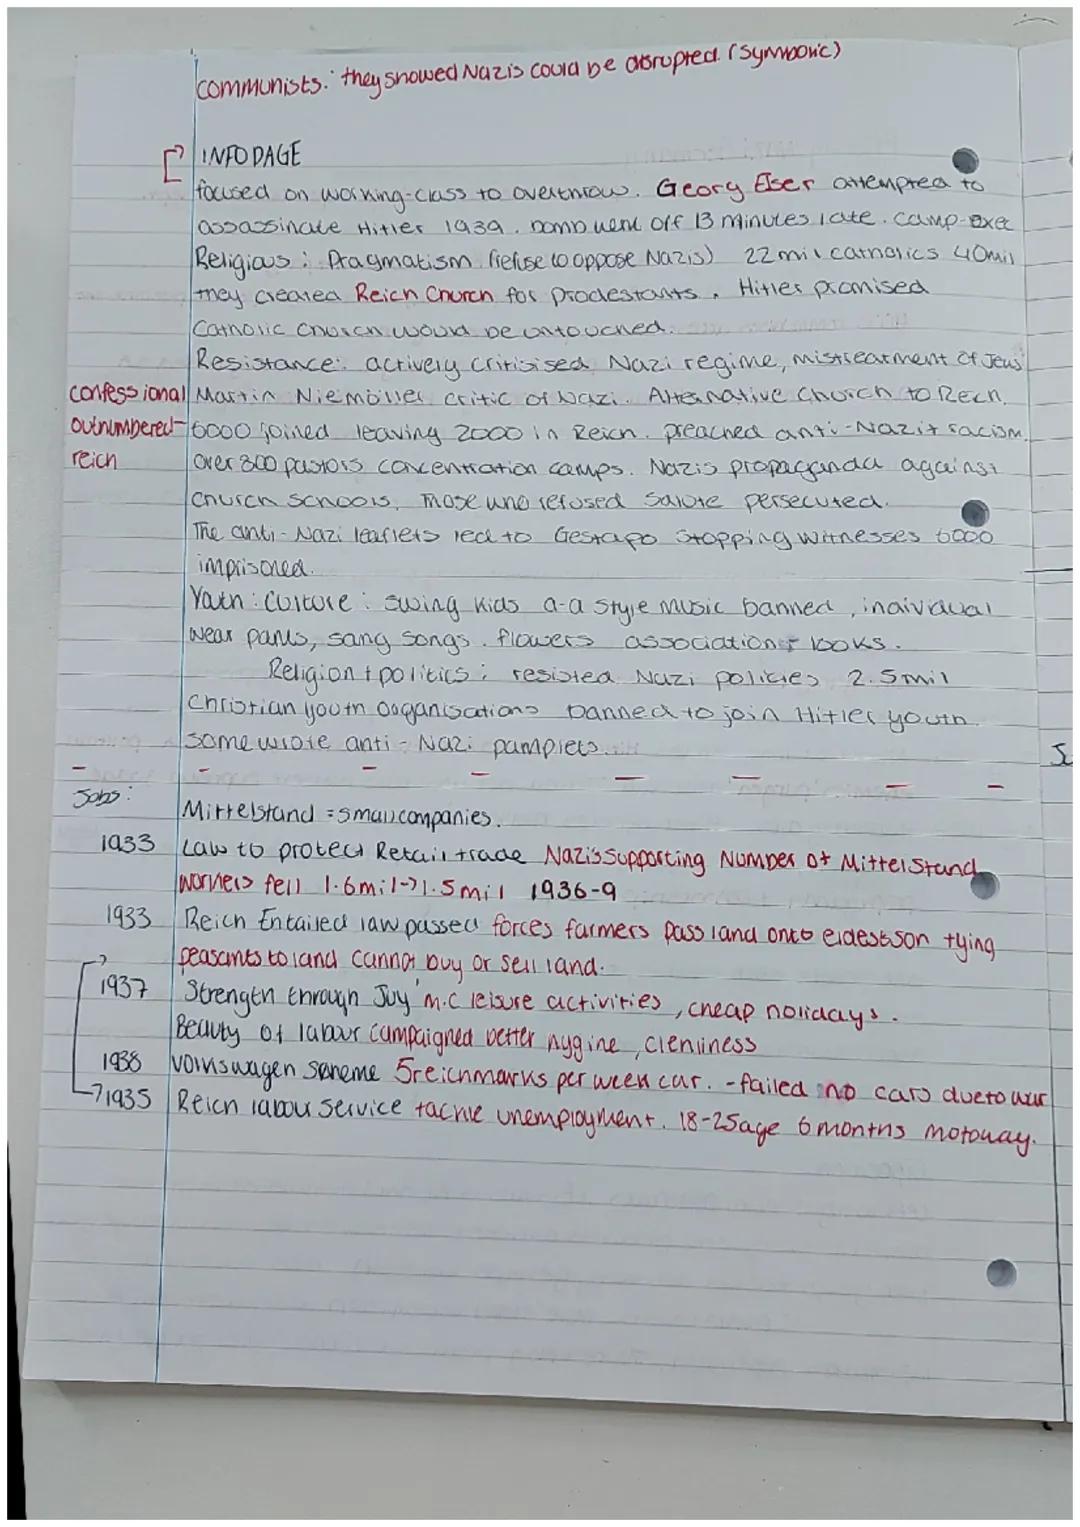 communists: they showed Nazis could be disrupted. (Symbolic)
INFO PAGE
focused on working-class to overthrow. Georg Elser attempted to
assassinate Hitler 1939. bomb went off 13 minutes late. camp-exec
Religious: Pragmatism (refuse to oppose Nazis) 22 mil catholics 40mil
they created Reich Church for Prodestants. Hitler promised
Catholic Church would be untouched.
Resistance: actively critisised Nazi regime, mistreatment of Jews
confessional Martin Niemöller critic of Nazi. Alternative Church to Reich.
outnumbered 6000 joined leaving 2000 in Reich. preached anti-Nazi + racism.
reich over 800 pastors concentration camps. Nazis propaganda against
church schools. Those who refused salute persecuted.
The anti-Nazi leaflets led to Gestapo stopping witnesses 6000
imprisoned.
Youth: Culture: swing kids a-a style music banned, individual
wear pants, sang songs. flowers association + looks.
Religion + politics: resisted Nazi policies 2.5mil
Christian youth organisations banned to join Hitler youth.
some wrote anti-Nazi pamplets.
Jobs:
Mittelstand = small companies.
1933 Law to protect Retail trade Nazis supporting Number of Mittelstand
workers fell 1.6mil->1.5mil 1936-9
1933 Reich Entailed law passed forces farmers pass land onto eldest son tying
peasants to land cannot buy or sell land.
1937 Strength through Joy m.c leisure activities, cheap holidays.
Beauty of labour campaigned better hygine, clenliness
1938 Volkswagen scheme 5reichmarks per week car. - failed no cars due to war
1935 Reich labour Service tackle unemployment. 18-25age 6 months motoway.